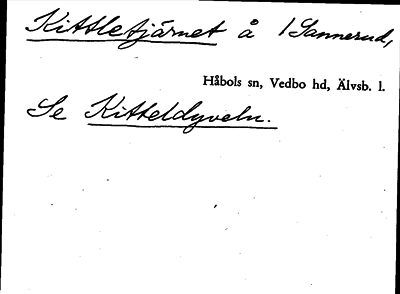 Kittletjärnet å 1 Sannerud,
Håbols sn, Vedbo hd, Älvsb. l.
Se Kitteldyveln.